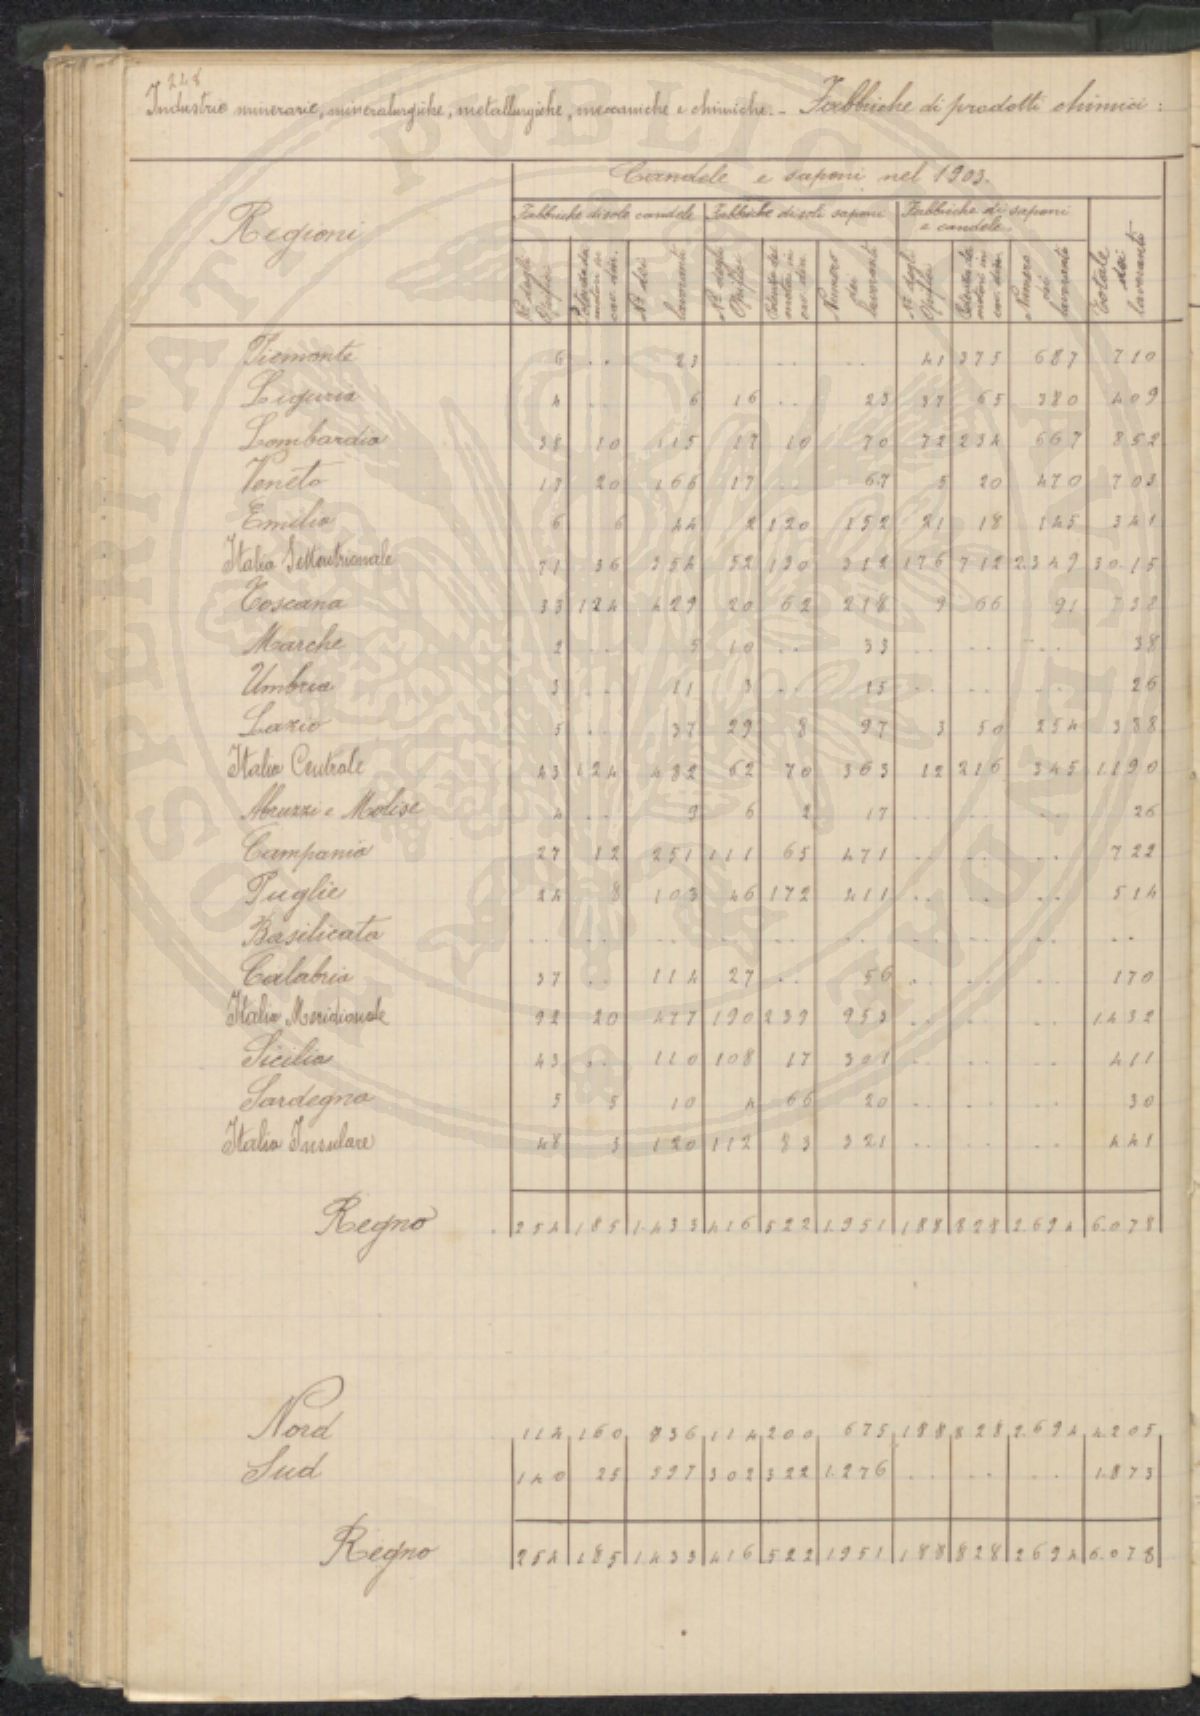 248
Industrie minerarie, mineralurgiche, metallurgiche, meccaniche e chimiche. - Fabbriche di prodotti chimici:
Candele e saponi nel 1903.
Regioni
Fabbriche di sole candele Fabbriche di soli saponi Fabbriche di saponi e candele
N° degli Opifici Potenza dei motori in cav. din. N° dei lavoranti N° degli Opifici Potenza dei motori in cav. din. Numero dei lavoranti N° degli Opifici Potenza dei motori in cav. din. Numero dei lavoranti Totale dei lavoranti
Piemonte 6 .. 23 .. .. .. 41 375 687 710
Liguria 4 .. 6 16 .. 23 37 65 380 409
Lombardia 38 10 115 17 10 70 72 234 667 852
Veneto 17 20 166 17 .. 67 5 20 470 703
Emilia 6 6 44 2 120 152 21 18 145 341
Italia Settentrionale 71 36 354 52 130 312 176 712 2349 30.15
Toscana 33 124 429 20 62 218 9 66 91 738
Marche 2 .. 5 10 .. 33 .. .. .. 38
Umbria 3 .. 11 3 .. 15 .. .. .. 26
Lazio 5 .. 37 29 8 97 3 50 254 388
Italia Centrale 43 124 482 62 70 363 12 216 345 1190
Abruzzi e Molise 4 .. 9 6 2 17 .. .. .. 26
Campania 27 12 251 111 65 471 .. .. .. 722
Puglie 24 8 103 46 172 411 .. .. .. 514
Basilicata .. .. .. .. .. .. .. .. .. ..
Calabria 37 .. 114 27 .. 56 .. .. .. 170
Italia Meridionale 92 20 477 190 239 953 .. .. .. 1.432
Sicilia 43 .. 110 108 17 301 .. .. .. 411
Sardegna 5 5 10 4 66 20 .. .. .. 30
Italia Insulare 48 5 120 112 83 321 .. .. .. 441
Regno 254 185 1.433 416 522 1.951 188 828 2.694 6.078
Nord 114 160 836 114 200 675 188 828 2.694 4.205
Sud 140 25 597 302 322 1.276 .. .. .. 1.873
Regno 254 185 1433 416 522 1951 188 828 2694 6.078